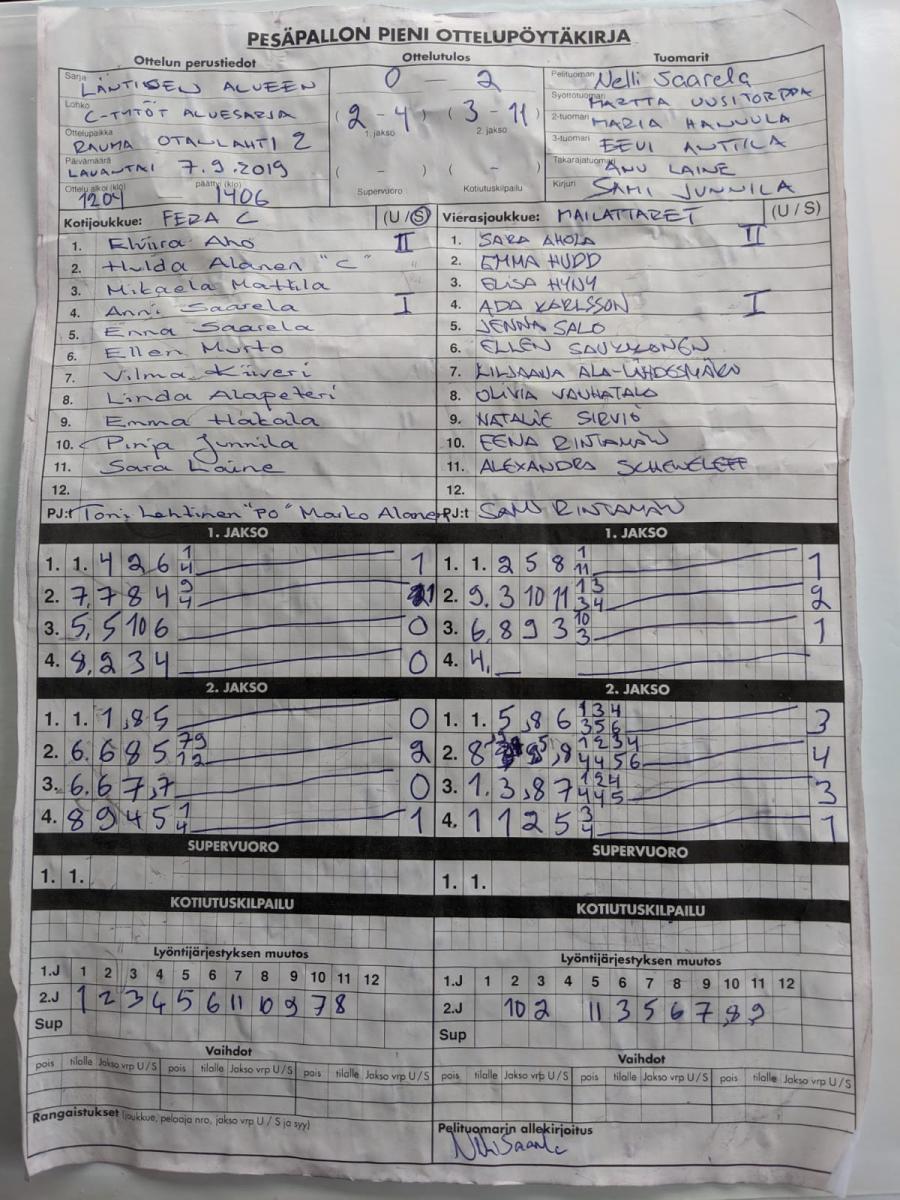 PESÄPALLON PIENI OTTELUPÖYTÄKIRJA
Ottelun perustiedot Ottelutulos Tuomarit
Sarja LÄNTISEN ALUEEN
Lohko C-TYTÖT ALUESARJA
Ottelupaikka RAUMA OTANLAHTI 2
Päivämäärä LAUANTAI 7.9.2019
Ottelu alkoi (klo) 1204 päättyi (klo) 1406
0 – 2
(2 - 4) (3 - 11)
1. jakso 2. jakso
( - ) ( - )
Supervuoro Kotiutuskilpailu
Pelituomari Nelli Saarela
Syöttötuomari MARTTA UUSITORPPA
2-tuomari MARIA HANNULA
3-tuomari EEVI ANTTILA
Takarajatuomari ANU LAINE
Kirjuri SAMI JUNNILA
Kotijoukkue: FERA C (U / S)
1. Elviira Aho II
2. Hulda Alanen "C"
3. Mikaela Mattila
4. Anni Saarela I
5. Enna Saarela
6. Ellen Murto
7. Vilma Kiiveri
8. Linda Alapeteri
9. Emma Hakala
10. Pinja Junnila
11. Sara Laine
12.
PJ:t Toni Lehtinen "PO" Marko Alanen
Vierasjoukkue: MAILATTARET (U / S)
1. SARA AHOLA II
2. EMMA HUDD
3. ELISA HYNY
4. ADA KARLSSON I
5. JENNA SALO
6. ELLEN SAUKKONEN
7. ALA-LÄHDESMÄKI
8. OLIVIA VAUHATALO
9. NATALIE SIRVIÖ
10. EENA RINTAMÄKI
11. ALEXANDRA
12.
PJ:t SAMI RINTAMÄKI
1. JAKSO
1. 1. 4 2 6 1 4 1
2. 7, 7 8 4 9 4 1
3. 5, 5 10 6 0
4. 8, 2 3 4 0
1. JAKSO
1. 1. 2 5 8 1 11 1
2. 9. 3 10 11 1 3 3 4 2
3. 6, 8 9 3 10 3 1
4. 4, _
2. JAKSO
1. 1. 1 , 8 5 0
2. 6. 6 8 5 7 9 1 2 2
3. 6. 6 7 , 7 0
4. 8 9 4 5 1 4 1
2. JAKSO
1. 1. 5 , 8 6 1 3 4 3 5 6 3
2. 8 , 8 1 2 3 4 4 4 5 6 4
3. 1. 3 , 8 7 1 2 4 4 4 5 3
4. 1 1 2 5 3 4 1
SUPERVUORO
1. 1.
SUPERVUORO
1. 1.
KOTIUTUSKILPAILU
KOTIUTUSKILPAILU
Lyöntijärjestyksen muutos
1.J 1 2 3 4 5 6 7 8 9 10 11 12
2.J 1 2 3 4 5 6 11 10 9 7 8
Sup
Lyöntijärjestyksen muutos
1.J 1 2 3 4 5 6 7 8 9 10 11 12
2.J 10 2 11 3 5 6 7 8 9
Sup
Vaihdot
pois tilalle Jakso vrp U / S pois tilalle Jakso vrp U / S pois tilalle Jakso vrp U / S
Vaihdot
pois tilalle Jakso vrp U / S pois tilalle Jakso vrp U / S pois tilalle Jakso vrp U / S
Rangaistukset (joukkue, pelaaja nro, jakso vrp U / S ja syy)
Pelituomarin allekirjoitus